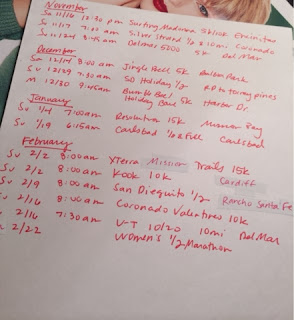 November
Sa 11/16 12:30 pm Surfing Madonna 5k/10k Encinitas
Su 11/17 7:30 am Silver Strand 1/2 & 10mi Coronado
Su 11/24 8:45am Delmar 5200 5k Del Mar
December
Sa 12/14 8:00 am Jingle Bell 5k Balboa Park
Su 12/29 7:30am SD Holiday 1/2 RB to torrey pines
M 12/30 7:45am Holiday Bowl 5k Harbor Dr.
January
Su 1/4 7:00am Resolution 15k Mission Bay
Su 1/19 6:15am Carlsbad 1/2 & Full Carlsbad
February
Su 2/2 8:00am Xterra Mission Trails 15k
Su 2/2 8:00am Kook 10k Cardiff
Su 2/9 8:00am San Dieguito 1/2 Rancho Santa Fe
2/16 8:00am Coronado Valentines 10k
2/16 7:30am U-T 10/20 10mi Del Mar
2/22 Women's 1/2 Marathon